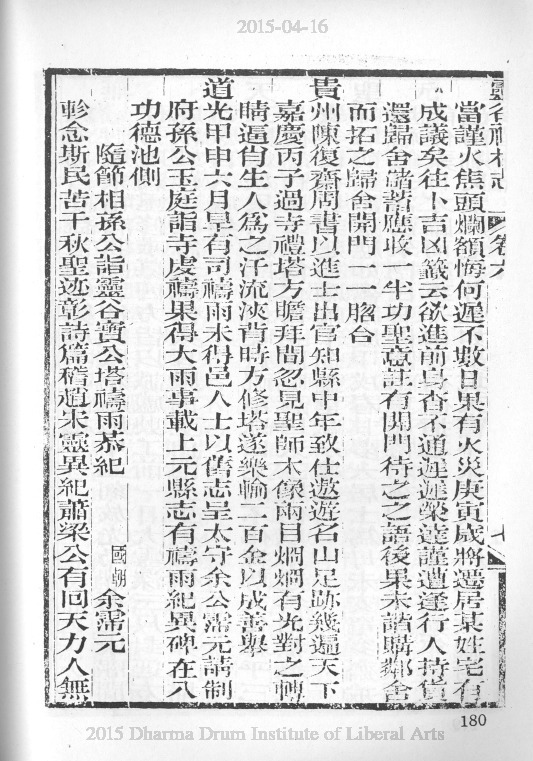 2015-04-16
靈谷禪林志 卷六 七
當謹火焦頭爛額悔何遲不數日果有火災庚寅歲將遷居某姓宅有
成議矣往卜吉凶籤云欲進前身杳不通遲遲榮達謹遭逢行人持貨
還歸舍儲蓄應收一半功聖意註有開門待之之語後果未諧購鄰舍
而拓之歸舍開門一一脗合
貴州陳復齋周書以進士出官知縣中年致仕遨遊名山足跡幾遍天下
嘉慶丙子過寺禮塔方瞻拜間忽見聖師木像兩目烱烱有光對之轉
睛逼肖生人為之汗流浹背時方修塔遂樂輸二百金以成善舉
道光甲申六月旱有司禱雨未得邑人士以舊志呈太守余公霈元請制
府孫公玉庭詣寺虔禱果得大雨事載上元縣志有禱雨紀異碑在八
功德池側
隨節相孫公詣靈谷寶公塔禱雨恭紀
國朝 余霈元
軫念斯民苦千秋聖迹彰詩篇稽趙宋靈異紀蕭梁公有回天力人無
180
2015 Dharma Drum Institute of Liberal Arts